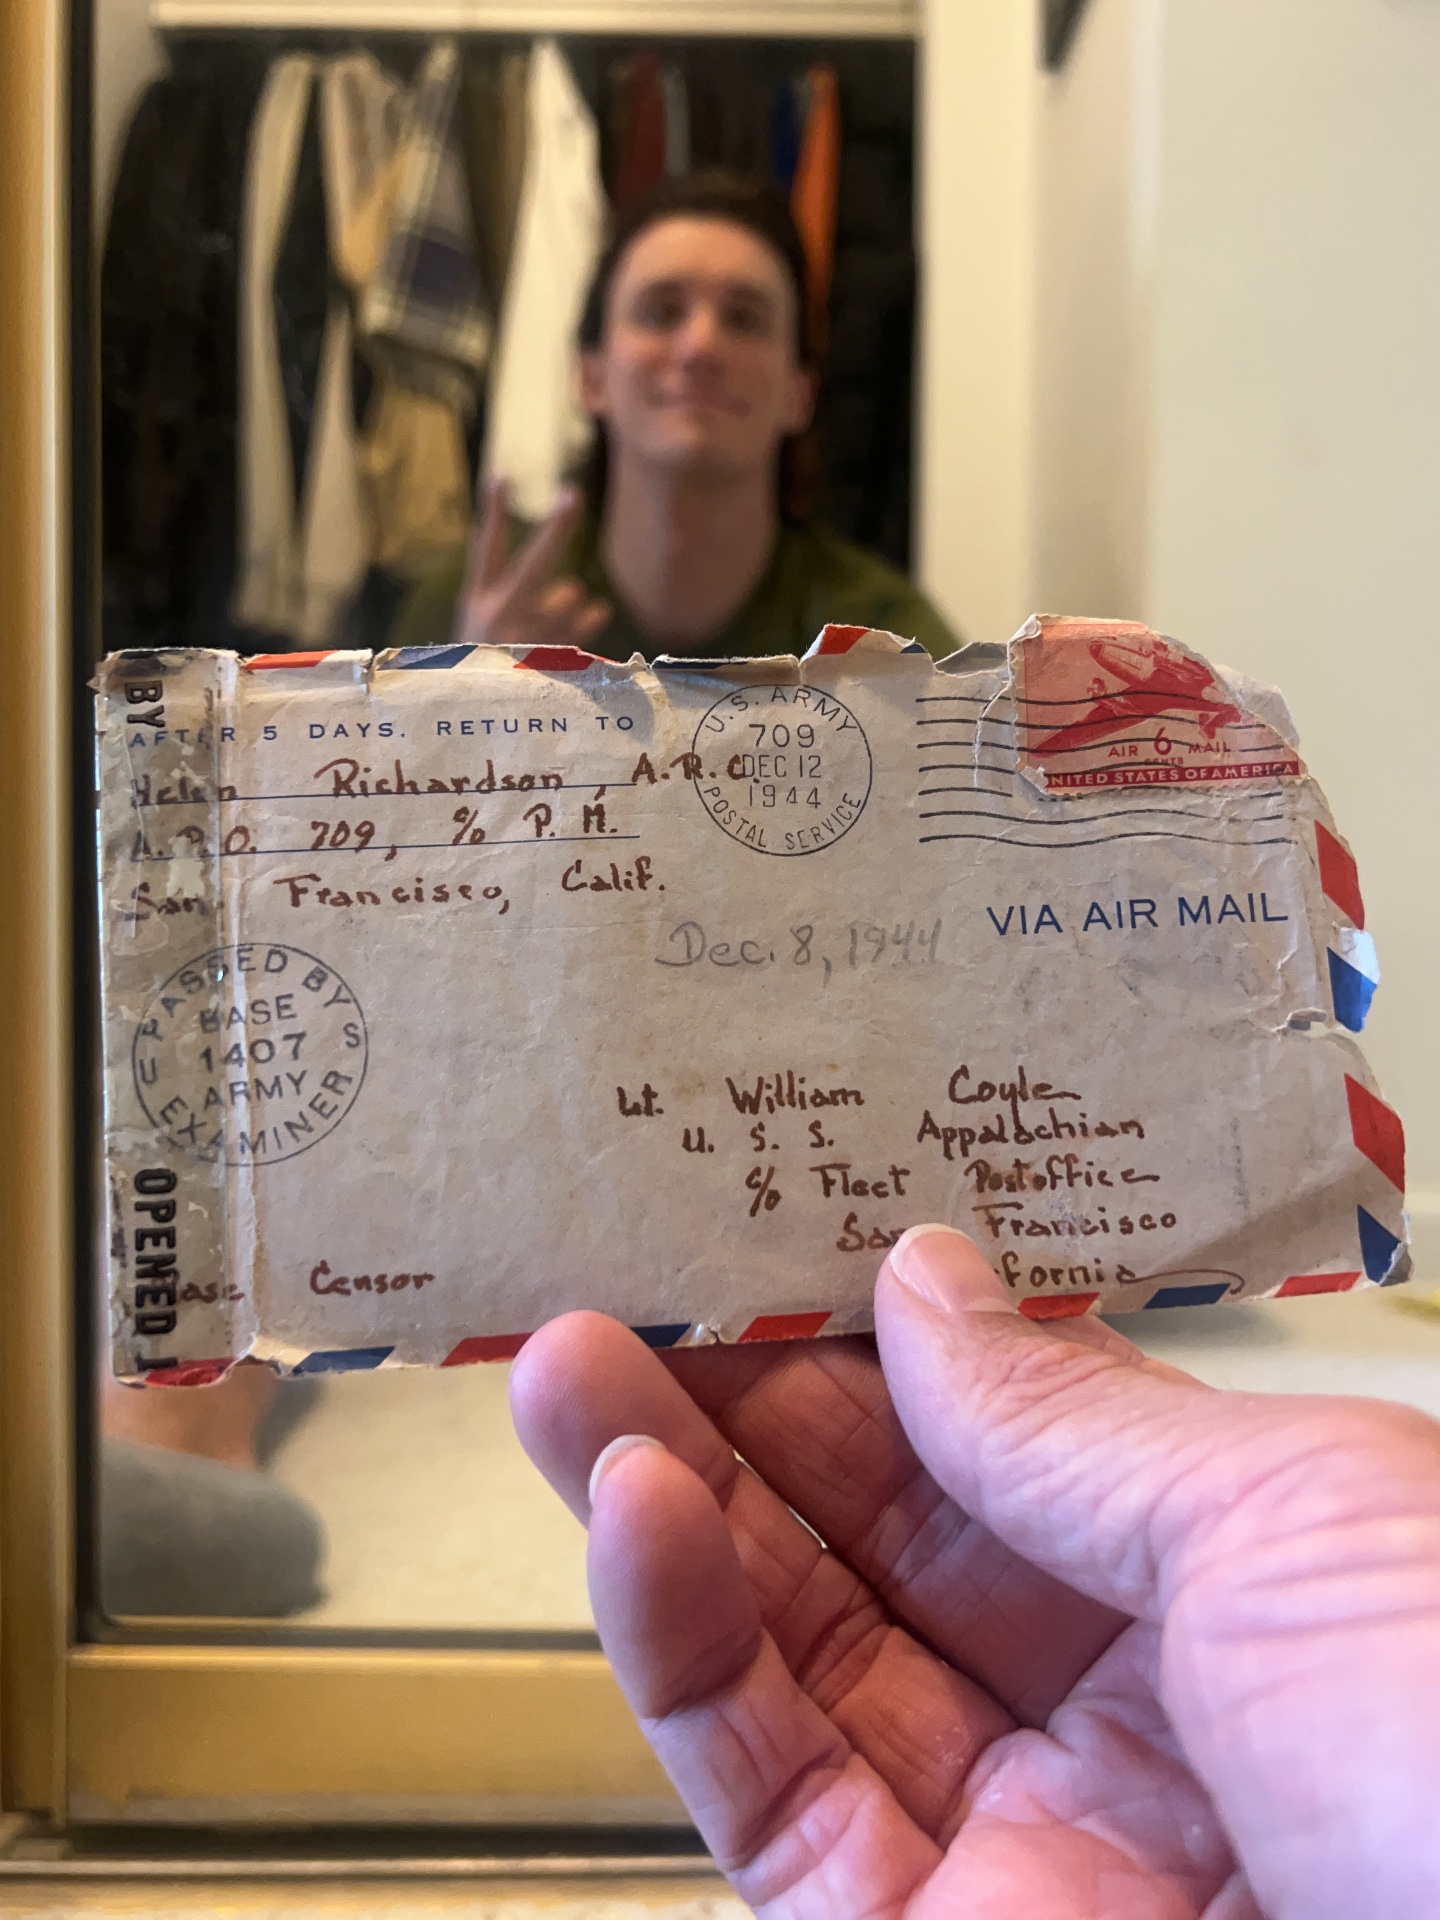 BY
AFTER 5 DAYS, RETURN TO
Helen Richardson, A.R.C.
A.P.O. 709, c/o P.M.
San Francisco, Calif.
U.S. ARMY
709
DEC 12
1944
POSTAL SERVICE
AIR 6 MAIL
CENTS
UNITED STATES OF AMERICA
VIA AIR MAIL
Dec. 8, 1944
PASSED BY
BASE
1407
ARMY
U S
EXAMINER
Lt. William Coyle
U. S. S. Appalachian
c/o Fleet Postoffice
San Francisco
fornia
OPENED
Base Censor